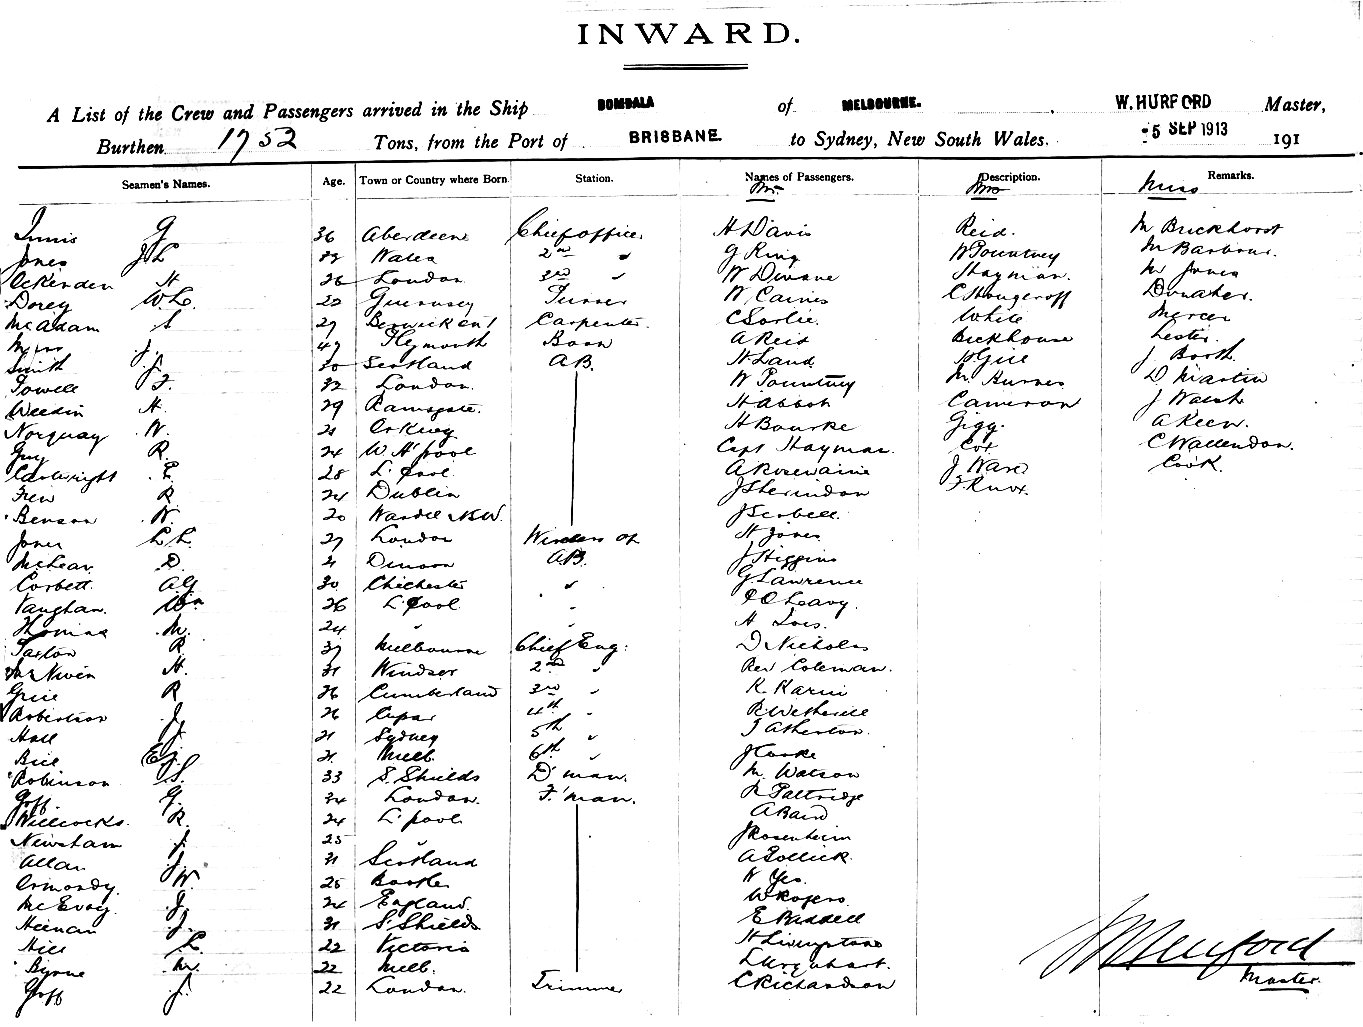 INWARD.
A List of the Crew and Passengers arrived in the Ship BOMBALA of MELBOURNE. , W. HURFORD Master,
Burthen 1752 Tons, from the Port of BRISBANE. to Sydney, New South Wales. -5 SEP 1913 191
Seamen's Names. Age. Town or Country where Born. Station. Names of Passengers. Description. Remarks.
Mr. Mrs Miss
Innis G 36 Aberdeen Chief officer H Davis Reid. M Brickhorst
Jones J L Wales 2nd " G King W Pountney M Barbour.
Ockenden H 26 London 3rd " W Dwane Hayman. M Jones
Dorey W L. 22 Guernsey Purser W. Caines Donaher.
McAdam 27 Carpenter. C Sorlie. White Mercer
J. 47 Plymouth Bosn A Reid Bickhouse Lester.
Smith J. 30 Scotland A.B. H Land Gill J Booth.
Powell F. 32 London. W Pountney M. Burnes D Martin
Weedin H. 29 Ramsgate. H Abbott Cameron J Walsh
Norquay W. 21 Orkney H Bourke Gigg. A Keen.
Guy R. 24 W. H'pool Capt Hayman. Cox C Wallendon.
Cartwright E. 28 L'pool. A Rosevaine J Ward Cook.
Frew R 24 Dublin J Sheridan F Knox.
Benson W. 20 Wardell N.S.W. J Serbell.
Jones L L. 27 London H Jones
McLean D. 21 A.B. J Higgins
Corbett A G 30 Chichester " G Lawrence
Vaughan. Wm 26 L'pool " O'Leavy.
Thomas M. 24 " " H
Saxton R 37 Melbourne Chief Eng: D Nicholas
McNiven H. 31 Windsor 2nd " Rev Coleman.
Grice R 26 Cumberland 3rd " K. Karin
Robertson J. 26 Cupar 4th " R Wetherill
Hall J. 21 Sydney 5th " T Atherton.
Bice E J. 21 Melb. 6th " J Cooke
Robinson S. 33 S. Shields D'man. M. Watson
Goff. G. 34 London. F'man. Paltridge
Willcocks. R. 24 L'pool A Baird
Newsham J. 25 " J Rosenheim
Allan J. 31 Scotland A Gollick.
Ormondy. W. 25 Bootle W Yes.
McEvoy. J. 24 England. W Rogers
Heenan J. 31 S. Shields E Biddell
Hill L. 22 Victoria H Livingstone
Byrne W. 22 Melb. L Urquhart.
Goff J. 22 London. Trimmer C Richardson
W Hurford
Master.